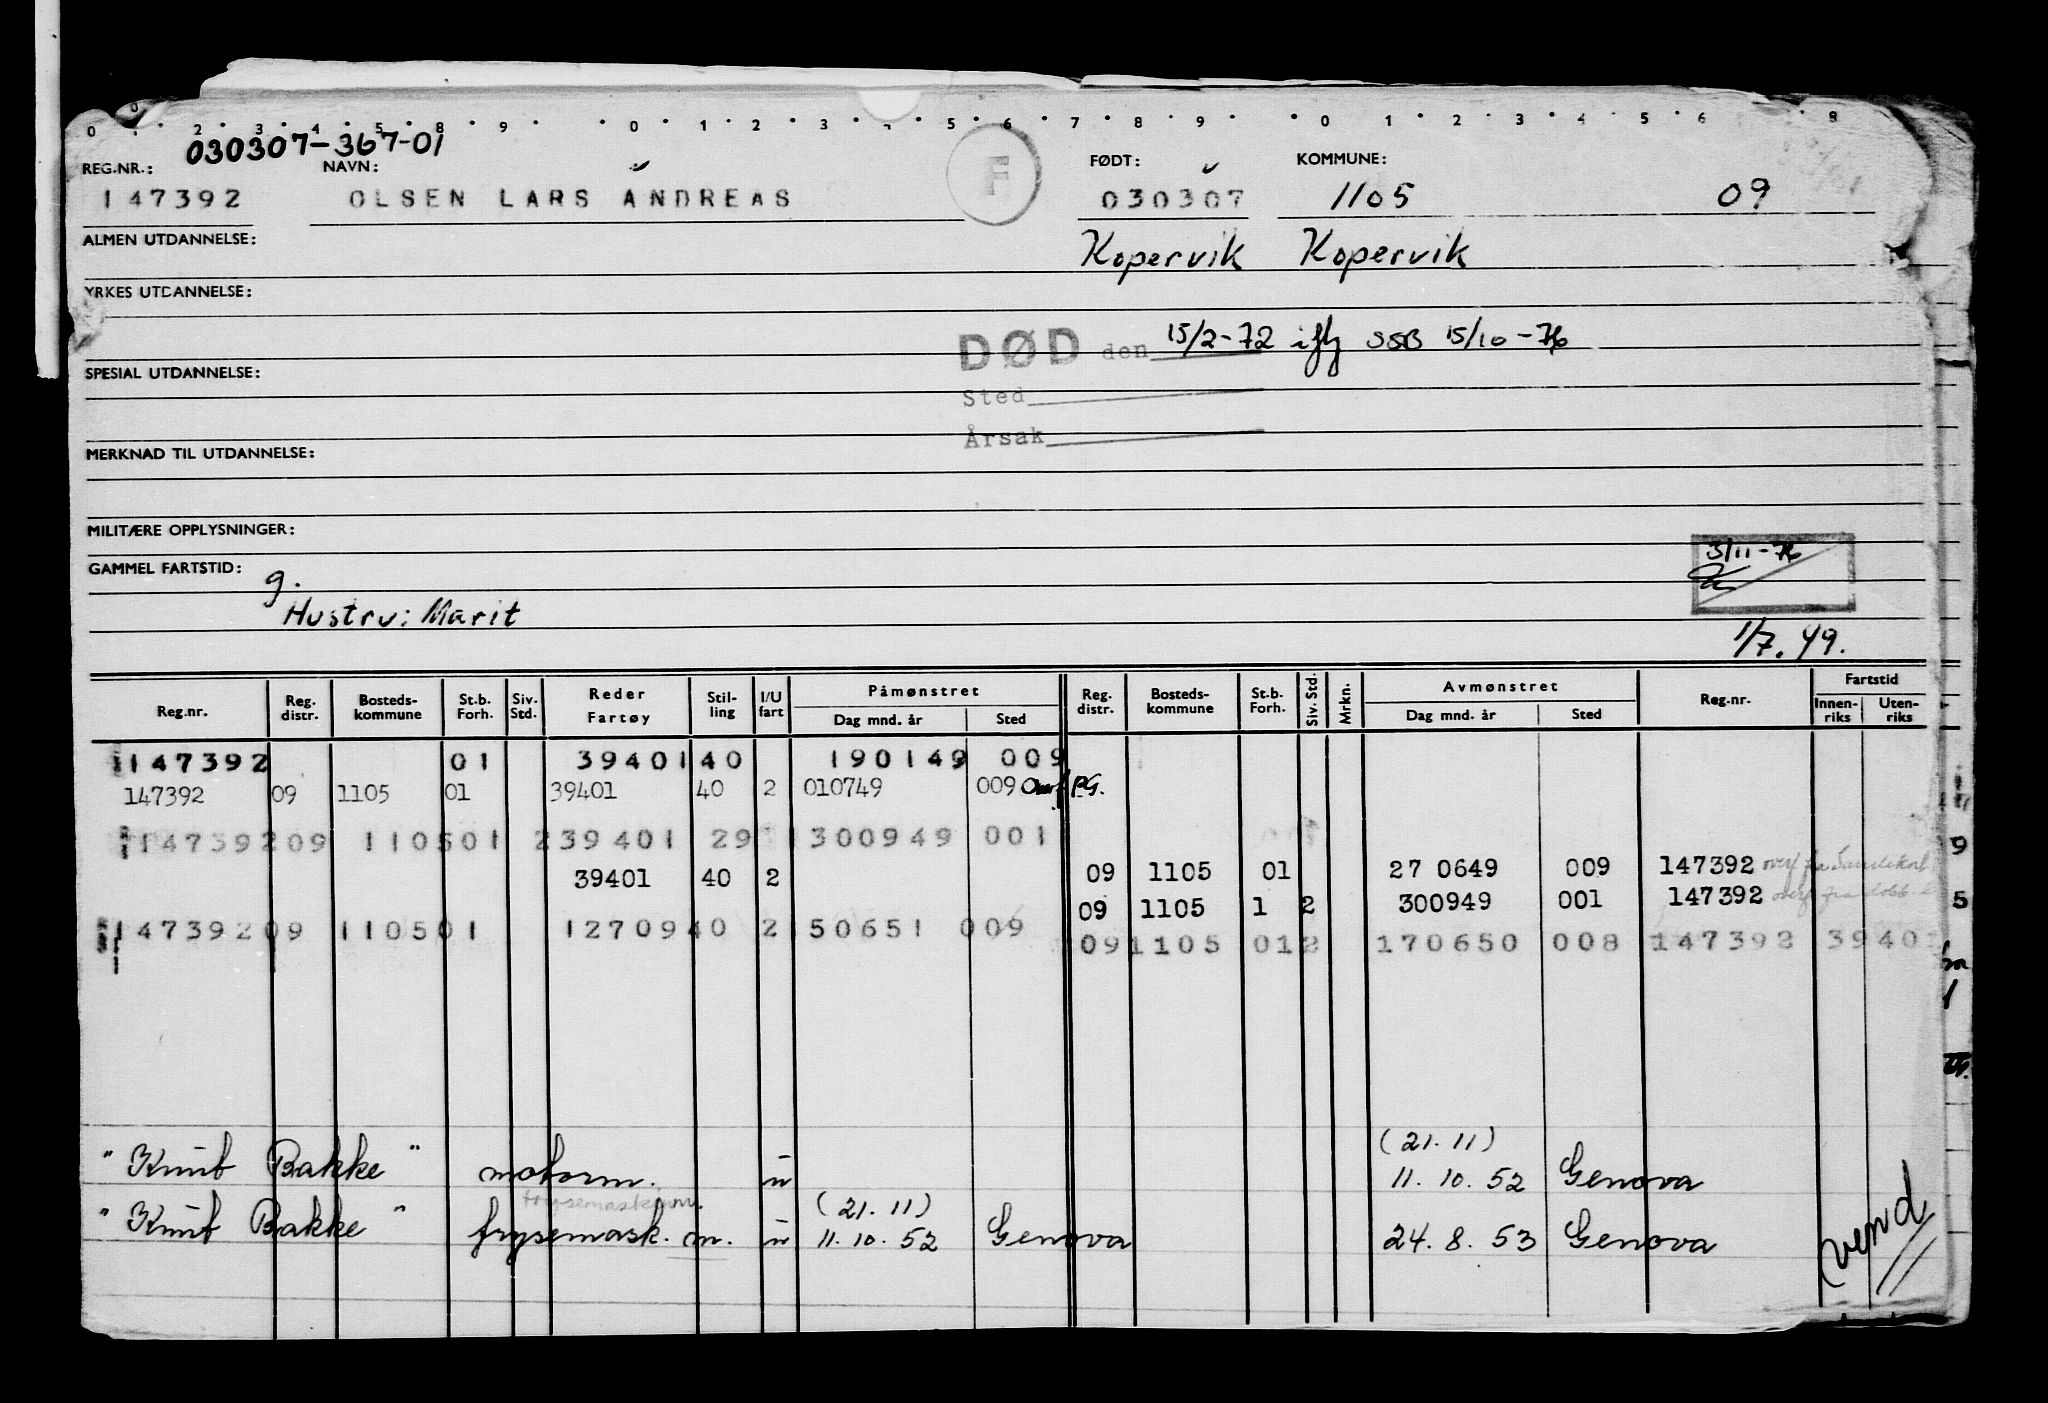 0 1 2 3 4 5 8 9 0 1 2 3 4 5 6 7 8 9 0 1 2 3 4 5 6 8
030307-367-01
REG.NR.: NAVN: FØDT: KOMMUNE:
147392 OLSEN LARS ANDREAS F 030307 1105 09
ALMEN UTDANNELSE: Kopervik Kopervik
YRKES UTDANNELSE:
DØD den 15/2-72 iflg SSB 15/10-76
SPESIAL UTDANNELSE:
Sted
Årsak
MERKNAD TIL UTDANNELSE:
MILITÆRE OPPLYSNINGER:
3/11-76
GAMMEL FARTSTID: g.
Hustru: Marit
1/7.49.
Reg.nr. Reg. distr. Bosteds-kommune St.b. Forh. Siv. Std. Reder Fartøy Stil-ling I/U fart Påmønstret Dag mnd. år Sted Reg. distr. Bosteds-kommune St.b. Forh. Siv. Std. Mrkn. Avmønstret Dag mnd. år Sted Reg.nr. Fartstid Innen-riks Uten-riks
147392 01 39401 40 190149 009
147392 09 1105 01 39401 40 2 010749 009 Overf P.G.
147392 09 1105 01 2 39401 29 300949 001
39401 40 2 09 1105 01 27 0649 009 147392 overf fra
09 1105 1 2 300949 001 147392 overf fra
147392 09 1105 01 12709 40 2 150651 009
09 1105 01 2 170650 008 147392 39401
(21.11)
"Knut Bakke" motorm. u 11.10.52 Genova
frysemaskinm.
(21.11)
"Knut Bakke" frysemask. m. u 11.10.52 Genova 24.8.53 Genova
vend